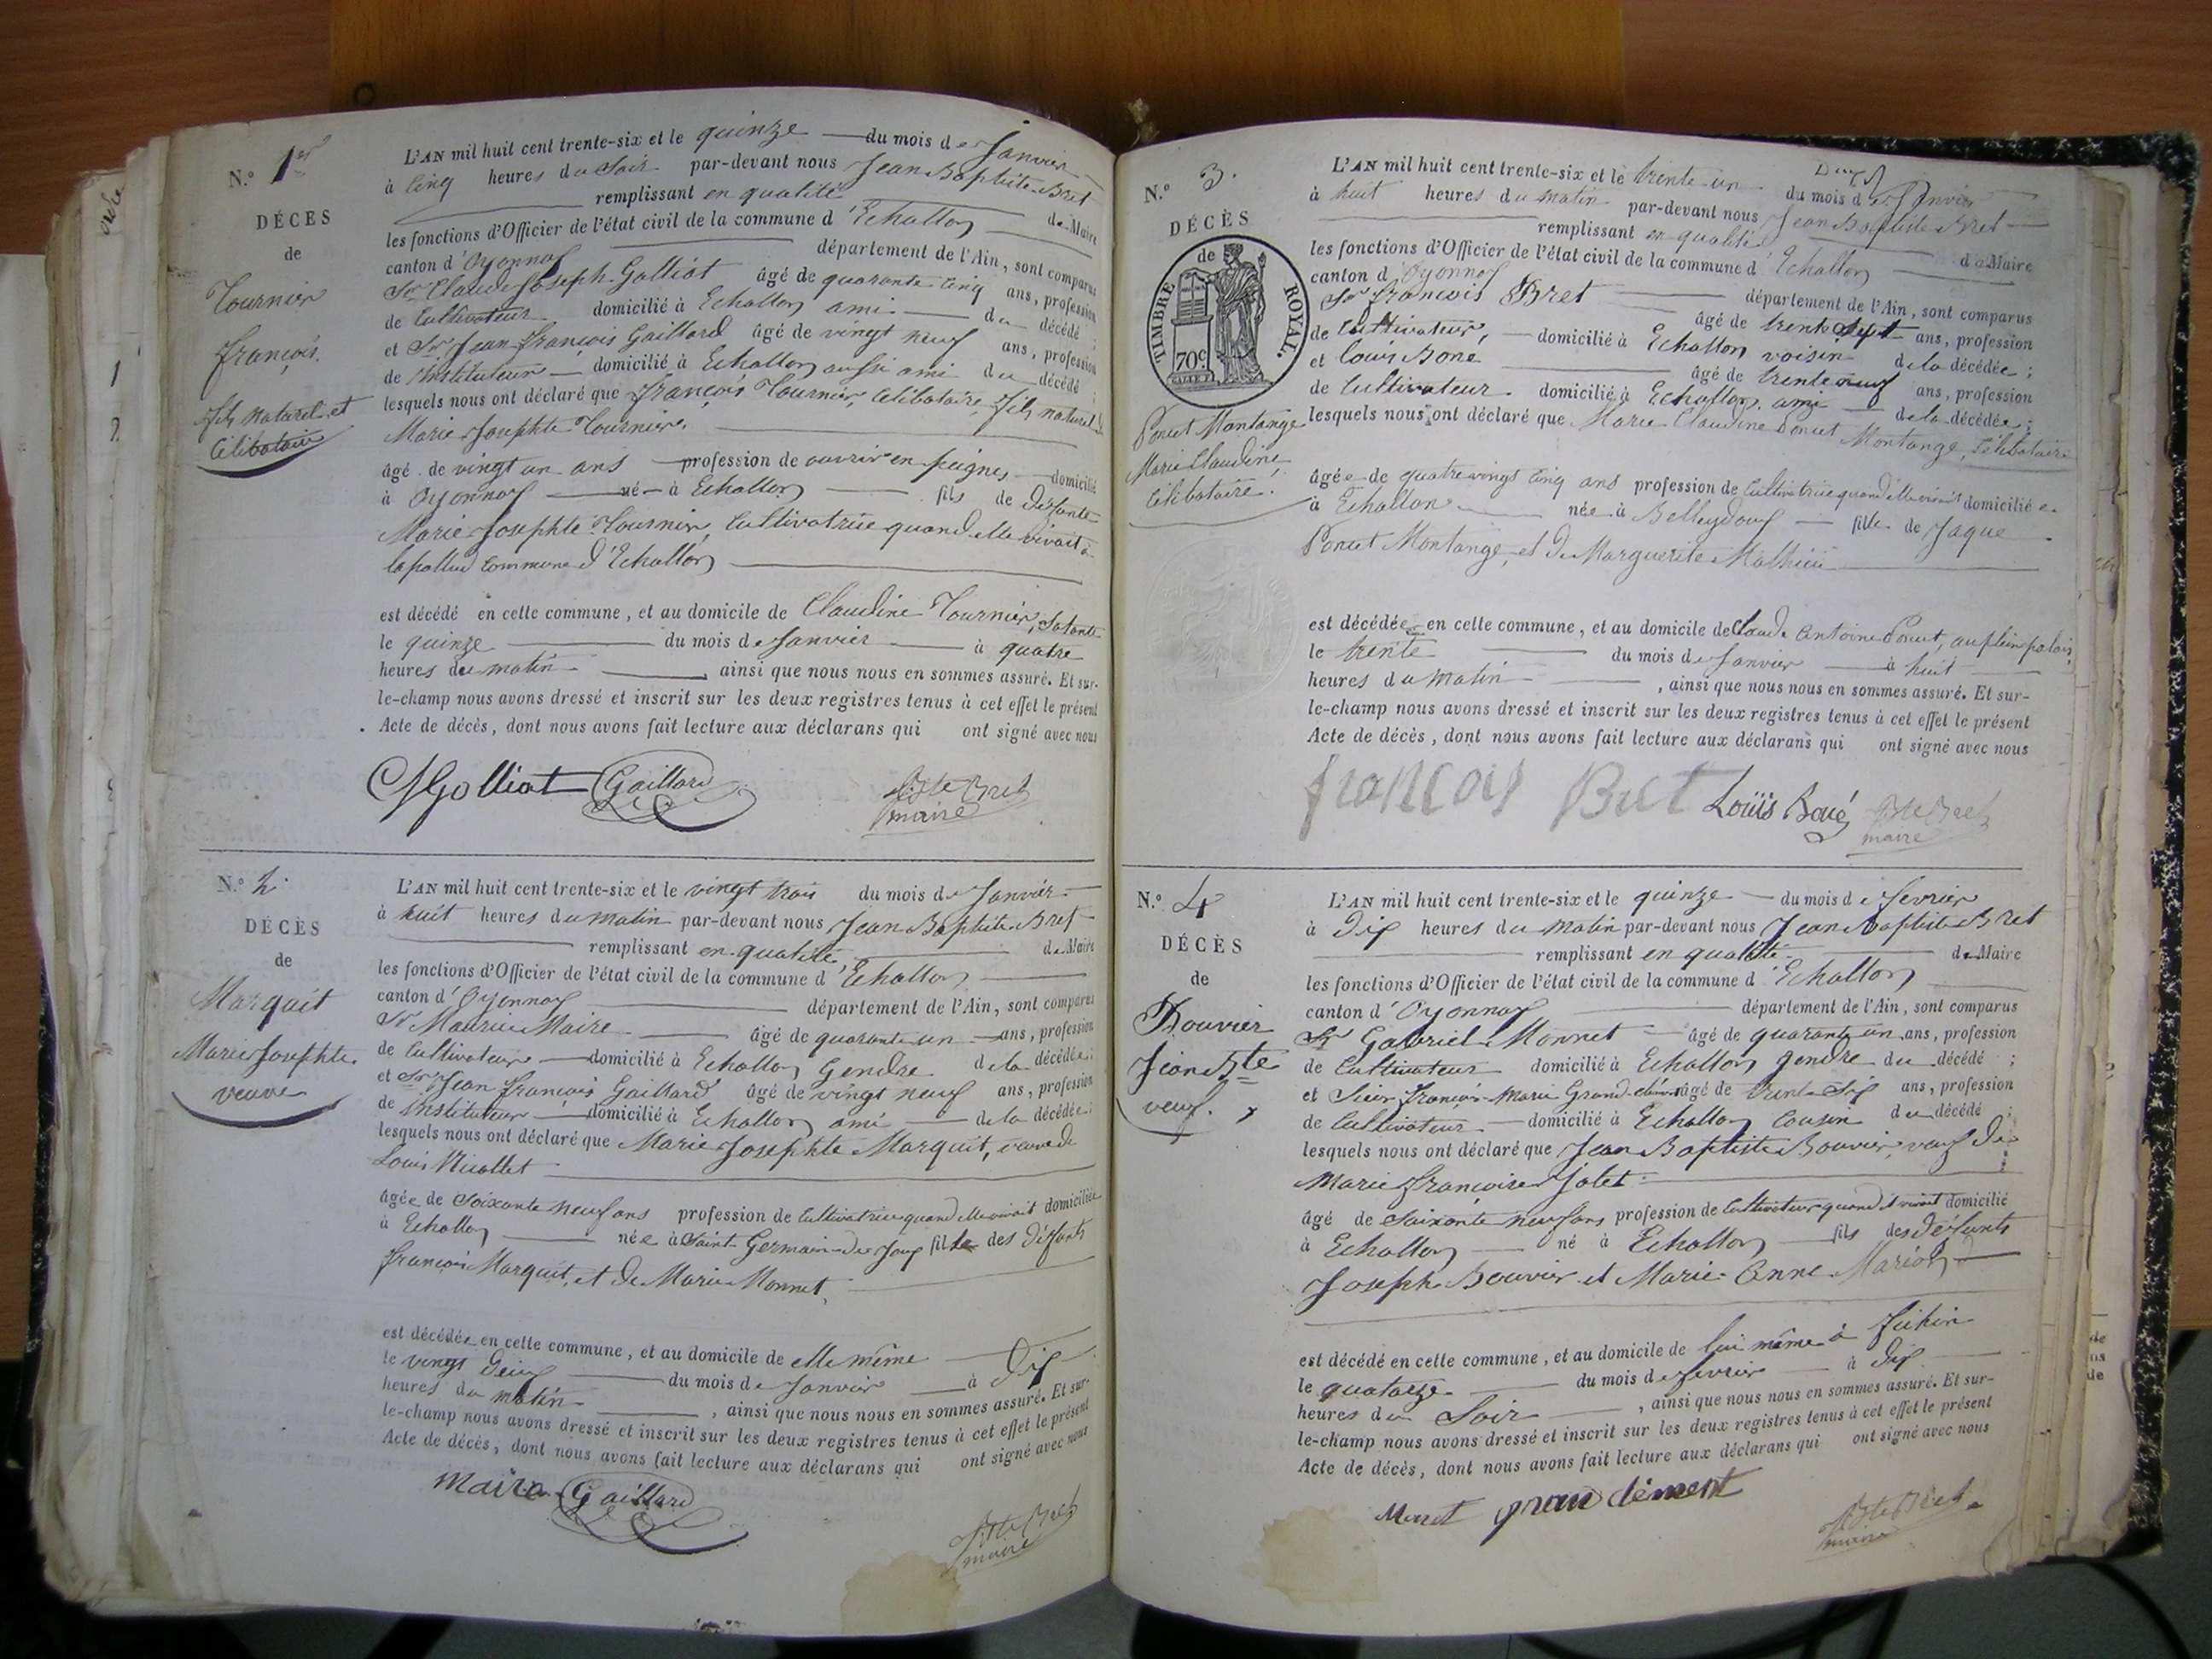 N.° 1er
DÉCES
de
Tournier
François.
fils naturel et
Célibataire
L'AN mil huit cent trente-six et le quinze du mois de Janvier
à Cinq heures du Soir par-devant nous Jean Baptiste Bret
remplissant en qualité de Maire
les fonctions d'Officier de l'état civil de la commune d'Echallon
canton d'Oyonnax département de l'Ain, sont comparus
Sr. Claude Joseph Golliat âgé de quarante Cinq ans, profession
de Cultivateur domicilié à Echallon ami du décédé ;
et Sr. Jean François Gaillard âgé de vingt neuf ans, profession
de Instituteur domicilié à Echallon aussi ami du décédé ;
lesquels nous ont déclaré que François Tournier, Célibataire, fils naturel de
Marie Josephte Tournier.
âgé de vingt un ans profession de ouvrier en peignes domicilié
à Oyonnax né à Echallon fils de Défunte
Marie Josephte Tournier, Cultivatrice quand elle vivait à
commune d'Echallon
est décédé en cette commune, et au domicile de Claudine Tournier, Sa tante
le quinze du mois de Janvier à quatre
heures du matin , ainsi que nous nous en sommes assuré. Et sur-
le-champ nous avons dressé et inscrit sur les deux registres tenus à cet effet le présent
Acte de décès, dont nous avons fait lecture aux déclarans qui ont signé avec nous
Golliat Gaillard Bte Bret
maire
N.° 2.
DÉCÈS
de
Marquit
Marie Josephte
veuve
L'AN mil huit cent trente-six et le vingt trois du mois de Janvier
à huit heures du matin par-devant nous Jean Baptiste Bret
remplissant en qualité de Maire
les fonctions d'Officier de l'état civil de la commune d'Echallon
canton d'Oyonnax département de l'Ain, sont comparus
Sr Maurice Maire âgé de quarante un ans, profession
de Cultivateur domicilié à Echallon Gendre de la décédée ;
et Sr. Jean François Gaillard âgé de vingt neuf ans, profession
de instituteur domicilié à Echallon ami de la décédée ;
lesquels nous ont déclaré que Marie Josephte Marquit, veuve de
Louis Nicollet
âgée de Soixante neuf ans profession de Cultivatrice quand elle vivait domiciliée
à Echallon née à Saint Germain de Joux fille des Défunts
François Marquit, et de Marie Monnet,
est décédée en cette commune, et au domicile de elle même
le vingt Deux du mois de Janvier à Dix
heures du matin , ainsi que nous nous en sommes assuré. Et sur-
le-champ nous avons dressé et inscrit sur les deux registres tenus à cet effet le présent
Acte de décès, dont nous avons fait lecture aux déclarans qui ont signé avec nous
Maire Gaillard
Bte Bret
maire
N.° 3.
DÉCÈS
de
TIMBRE ROYAL.
70c.
Poncet Montange
Marie Claudine,
Célibataire.
L'AN mil huit cent trente-six et le trente un du mois de Janvier
à huit heures du matin par-devant nous Jean Baptiste Bret
remplissant en qualité de Maire
les fonctions d'Officier de l'état civil de la commune d'Echallon
canton d'Oyonnax département de l'Ain, sont comparus
Sr François Bret âgé de trente Sept ans, profession
de Cultivateur, domicilié à Echallon voisin de la décédée ;
et Louis Bone âgé de trente neuf ans, profession
de Cultivateur domicilié à Echallon ami de la décédée ;
lesquels nous ont déclaré que Marie Claudine Poncet Montange, Célibataire
âgée de quatre vingt Cinq ans profession de Cultivatrice quand elle vivait domiciliée
à Echallon née à Belleydoux fille de Jaque
Poncet Montange, et de Marguerite Mathieu
est décédée en cette commune, et au domicile de Claude Antoine Poncet, au
le trente du mois de Janvier à huit
heures du matin , ainsi que nous nous en sommes assuré. Et sur-
le-champ nous avons dressé et inscrit sur les deux registres tenus à cet effet le présent
Acte de décès, dont nous avons fait lecture aux déclarans qui ont signé avec nous
françois Bret Louis Boné Bte Bret
maire
N.° 4
DÉCÈS
de
Bouvier
Jean Bte
veuf.
L'AN mil huit cent trente-six et le quinze du mois de fevrier
à Dix heures du matin par-devant nous Jean Baptiste Bret
remplissant en qualité de Maire
les fonctions d'Officier de l'état civil de la commune d'Echallon
canton d'Oyonnax département de l'Ain, sont comparus
Sr Gabriel Monnet âgé de quarante un ans, profession
de Cultivateur domicilié à Echallon gendre du décédé ;
et Sieur François Marie Grand-clément âgé de trente Six ans, profession
de Cultivateur domicilié à Echallon Cousin du décédé ;
lesquels nous ont déclaré que Jean Baptiste Bouvier, veuf de
Marie Françoise Jolet
âgé de Soixante neuf ans profession de Cultivateur quand il vivait domicilié
à Echallon né à Echallon fils des défunts
Joseph Bouvier et Marie Anne
est décédé en cette commune, et au domicile de lui même à
le quatorze du mois de fevrier à Dix
heures du Soir , ainsi que nous nous en sommes assuré. Et sur-
le-champ nous avons dressé et inscrit sur les deux registres tenus à cet effet le présent
Acte de décès, dont nous avons fait lecture aux déclarans qui ont signé avec nous
Monet grand clément
Bte Bret
maire